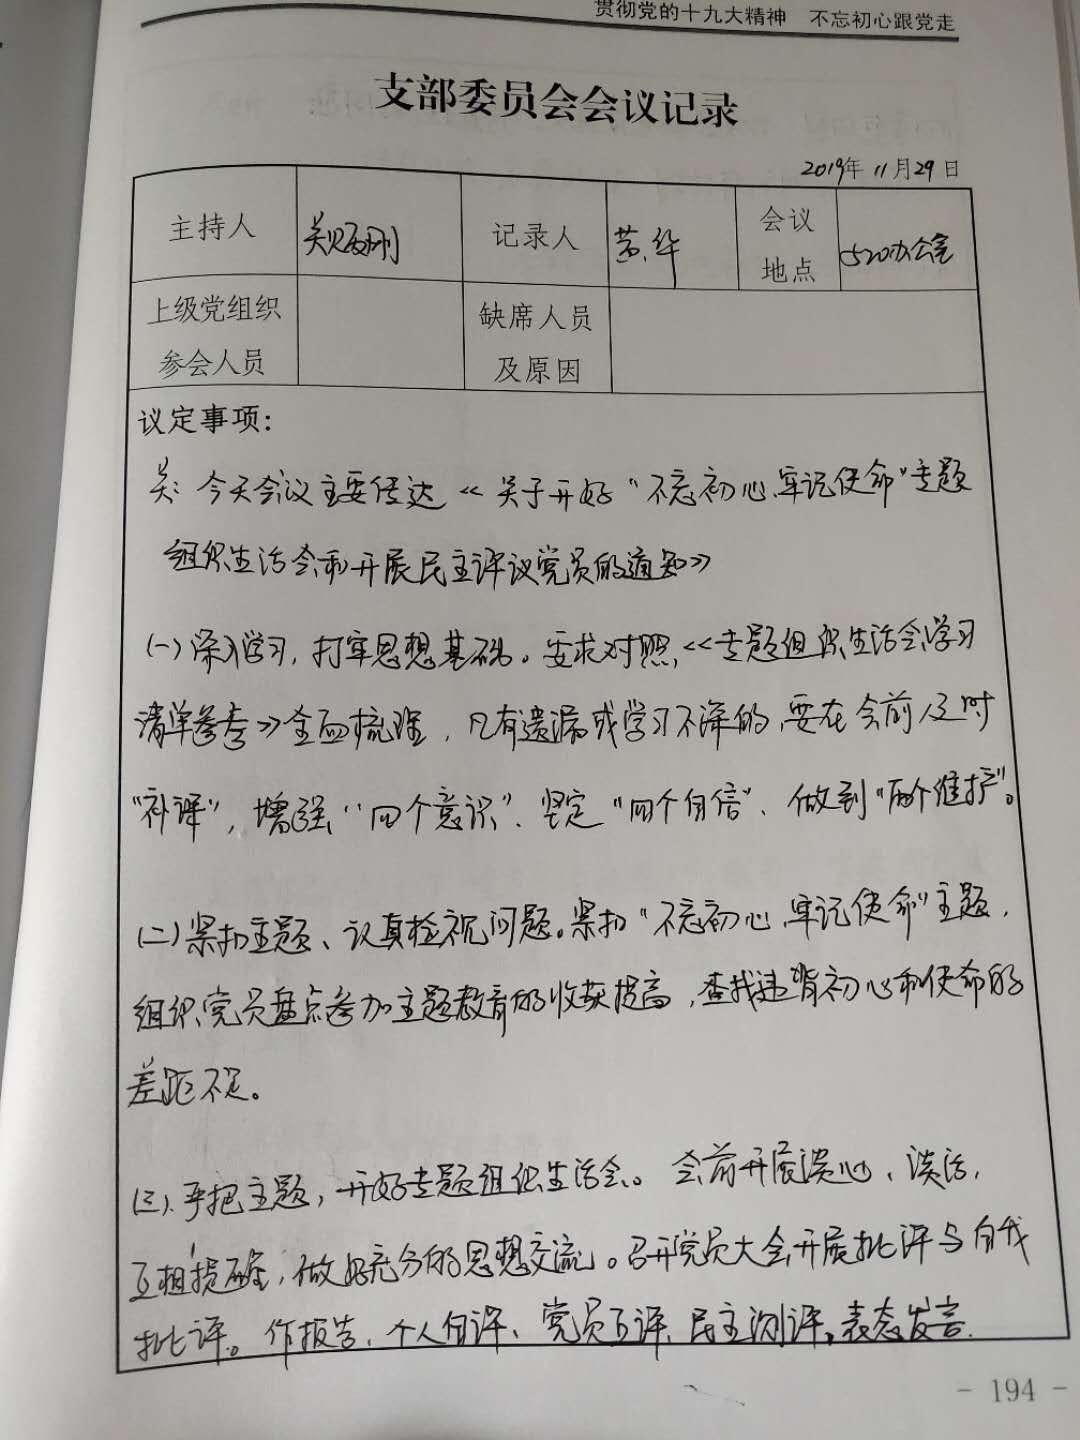 贯彻党的十九大精神 不忘初心跟党走
支部委员会会议记录
2019年 11月29日
主持人 记录人 黄华 会议地点 520办公室
上级党组织参会人员 缺席人员及原因
议定事项：
关：今天会议主要传达《关于开好“不忘初心、牢记使命”专题
组织生活会和开展民主评议党员的通知》
(一)深入学习，打牢思想基础。要求对照《专题组织生活会学习
清单参考》全面梳理，凡有遗漏或学习不深的，要在会前及时
“补课”，增强“四个意识”、坚定“四个自信”、做到“两个维护”。
(二)紧扣主题、认真检视问题。紧扣“不忘初心、牢记使命”主题，
组织党员盘点参加主题教育的收获提高，查找违背初心和使命的
差距不足。
(三)、主题，开好专题组织生活会。会前开展谈心、谈话，
互相提醒，做好充分的思想交流。召开党员大会开展批评与自我
批评。作报告、个人自评、党员互评、民主测评。表态发言.
- 194 -